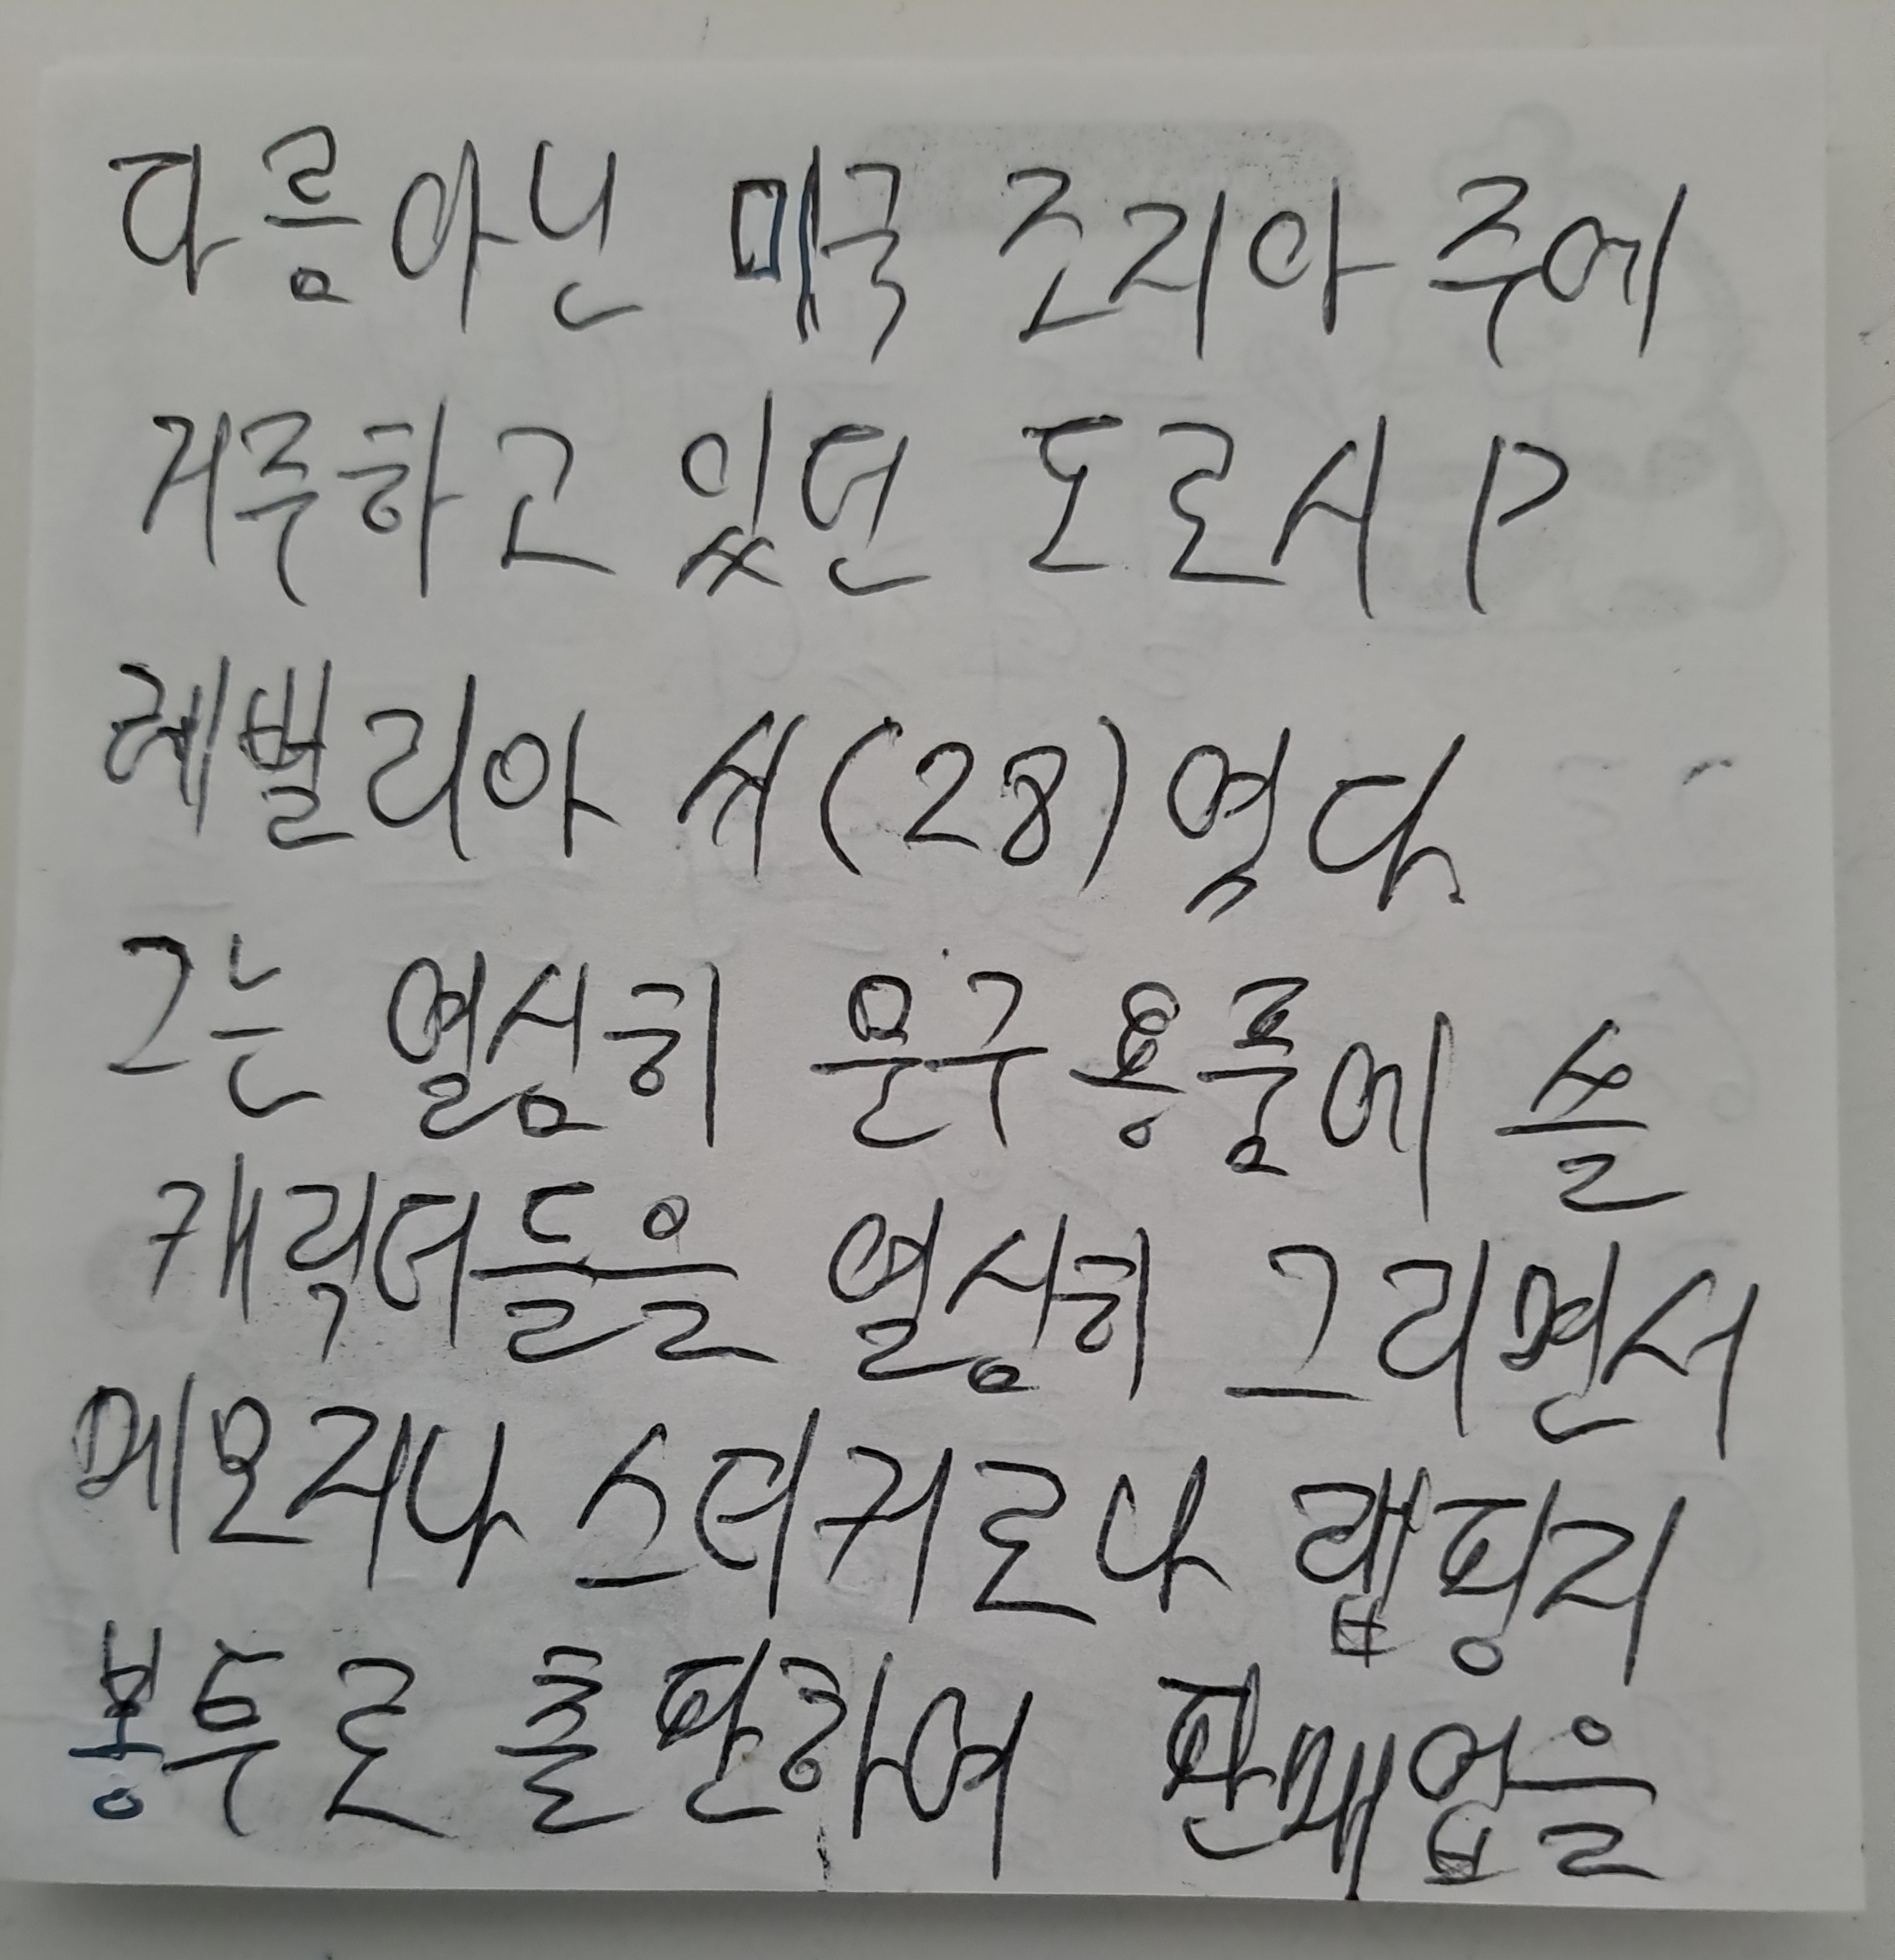 다름아닌 미국 조지아 주에
거주하고 있던 도로시 P
레벨리아 씨(28)였다
그는 열심히 문구 용품에 쓸
캐릭터들을 열심히 그리면서
메모지나 스터커로나 랩핑지
봉투로 출판하여 판매업을